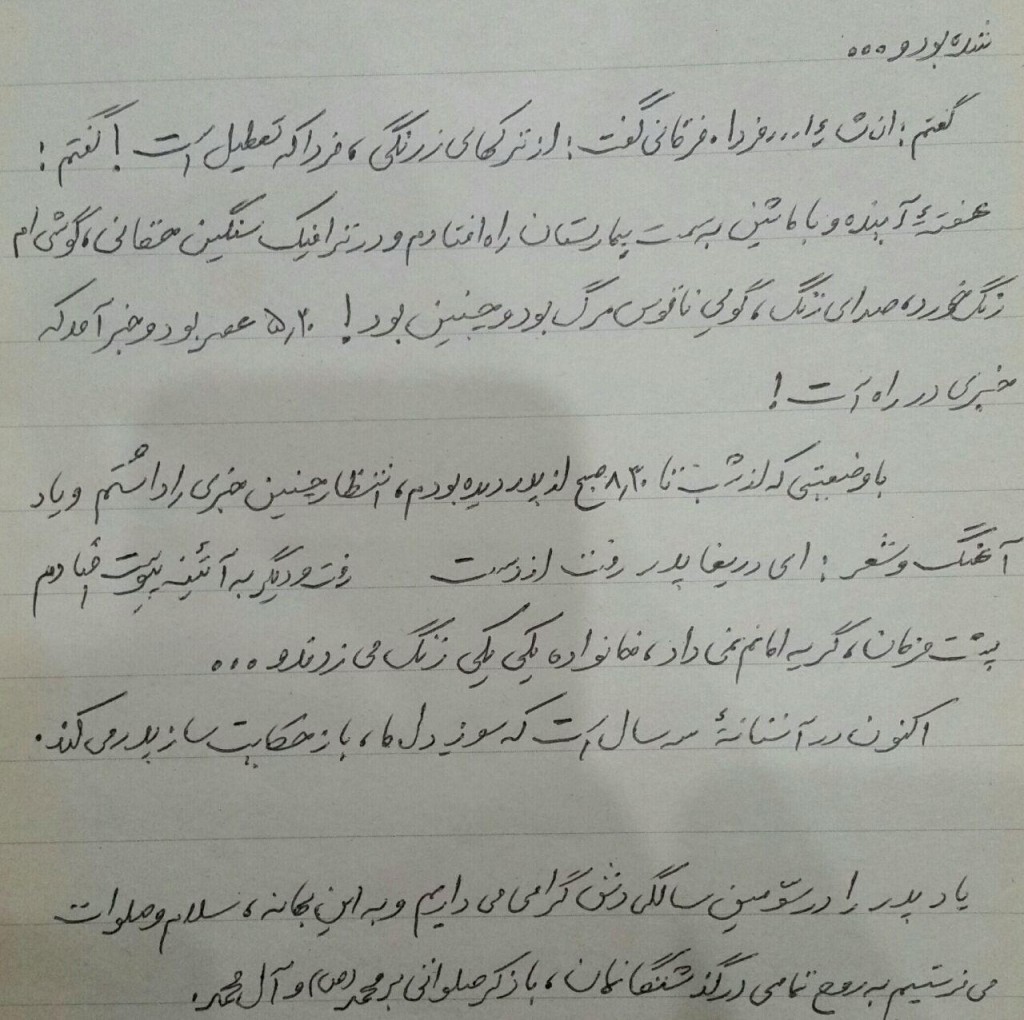 شده بود و ...
گفتم : ان شاءا... فردا . فرقانی گفت : از ترکهای زرنگی ، فردا که تعطیل است ! گفتم :
هفتهٔ آینده و با ماشین به سمت بیمارستان راه افتادم و در ترافیک سنگین حقانی ، گوشی ام
زنگ خورد ، صدای زنگ ، گویی ناقوس مرگ بود و چنین بود ! ۵٫۳۰ عصر بود و خبر آمد که
خبری در راه است !
با وضعیتی که از شب تا ۸٫۳۰ صبح از پدر دیده بودم ، انتظار چنین خبری را داشتم و یاد
آهنگ و شعر : ای دریغا پدر رفت از دست رفت و دیگر به آئینه پیوست افتادم
پشت فرمان ، گریه امانم نمی داد ، خانواده یکی یکی زنگ می زدند و ...
اکنون در آستانهٔ سه سال است که سوز دل ما ، باز حکایت ساز پدر می کند .
یاد پدر را در سوّمین سالگردش گرامی می داریم و به این بهانه ، سلام و صلوات
می فرستیم به روح تمامی درگذشتگانمان ، با ذکر صلواتی بر محمد (ص) و آل محمد .